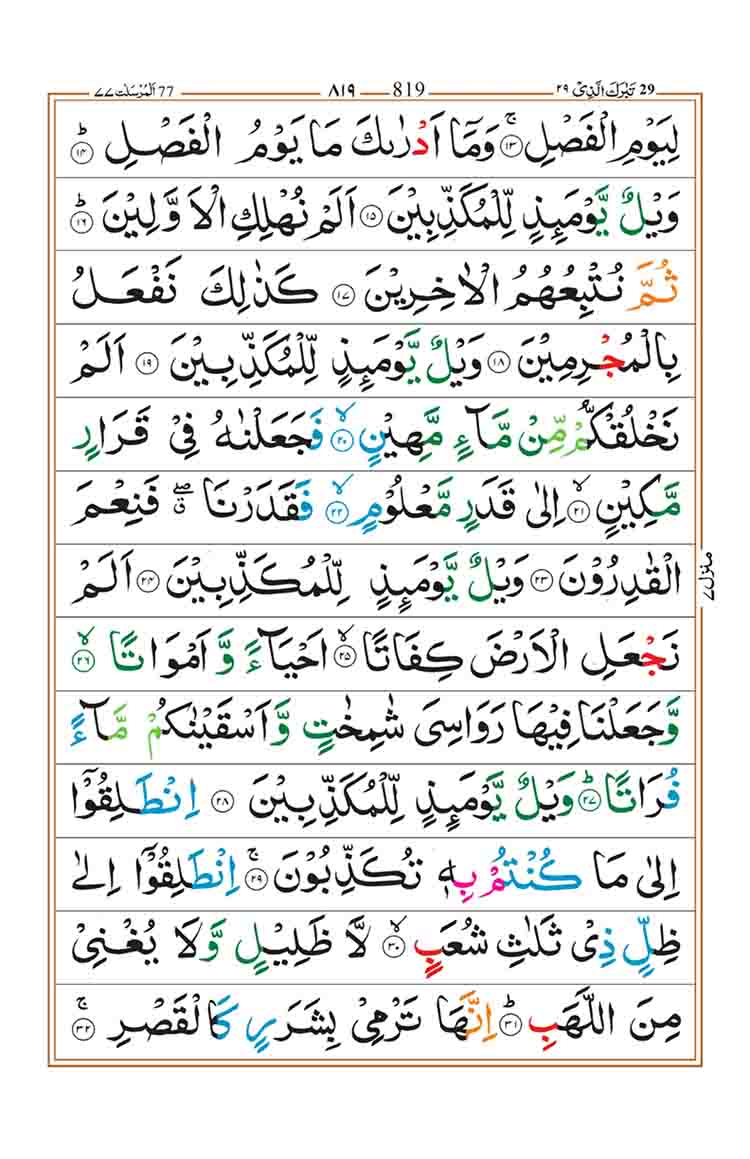 29 تَبٰرَكَ الَّذِیْ ٢٩ 819 ٨١٩ 77 اَلْمُرْسَلٰت ٧٧
لِیَوْمِ الْفَصْلِ ۚ ﴿١٣﴾ وَمَاۤ اَدْرٰىكَ مَا یَوْمُ الْفَصْلِ ؕ ﴿١٤﴾
وَیْلٌ یَّوْمَىِٕذٍ لِّلْمُكَذِّبِیْنَ ﴿١٥﴾ اَلَمْ نُهْلِكِ الْاَوَّلِیْنَ ؕ ﴿١٦﴾
ثُمَّ نُتْبِعُهُمُ الْاٰخِرِیْنَ ﴿١٧﴾ كَذٰلِكَ نَفْعَلُ
بِالْمُجْرِمِیْنَ ﴿١٨﴾ وَیْلٌ یَّوْمَىِٕذٍ لِّلْمُكَذِّبِیْنَ ﴿١٩﴾ اَلَمْ
نَخْلُقْكُّمْ مِّنْ مَّآءٍ مَّهِیْنٍ ۙ ﴿٢٠﴾ فَجَعَلْنٰهُ فِیْ قَرَارٍ
مَّكِیْنٍ ۙ ﴿٢١﴾ اِلٰى قَدَرٍ مَّعْلُوْمٍ ۙ ﴿٢٢﴾ فَقَدَرْنَا ۖۗ فَنِعْمَ
الْقٰدِرُوْنَ ﴿٢٣﴾ وَیْلٌ یَّوْمَىِٕذٍ لِّلْمُكَذِّبِیْنَ ﴿٢٤﴾ اَلَمْ
نَجْعَلِ الْاَرْضَ كِفَاتًا ۙ ﴿٢٥﴾ اَحْیَآءً وَّ اَمْوَاتًا ۙ ﴿٢٦﴾
وَّجَعَلْنَا فِیْهَا رَوَاسِیَ شٰمِخٰتٍ وَّ اَسْقَیْنٰكُمْ مَّآءً
فُرَاتًا ؕ ﴿٢٧﴾ وَیْلٌ یَّوْمَىِٕذٍ لِّلْمُكَذِّبِیْنَ ﴿٢٨﴾ اِنْطَلِقُوْۤا
اِلٰى مَا كُنْتُمْ بِهٖ تُكَذِّبُوْنَ ۚ ﴿٢٩﴾ اِنْطَلِقُوْۤا اِلٰى
ظِلٍّ ذِیْ ثَلٰثِ شُعَبٍ ۙ ﴿٣٠﴾ لَّا ظَلِیْلٍ وَّلَا یُغْنِیْ
مِنَ اللَّهَبِ ؕ ﴿٣١﴾ اِنَّهَا تَرْمِیْ بِشَرَرٍ كَالْقَصْرِ ۚ ﴿٣٢﴾
منزل ٧